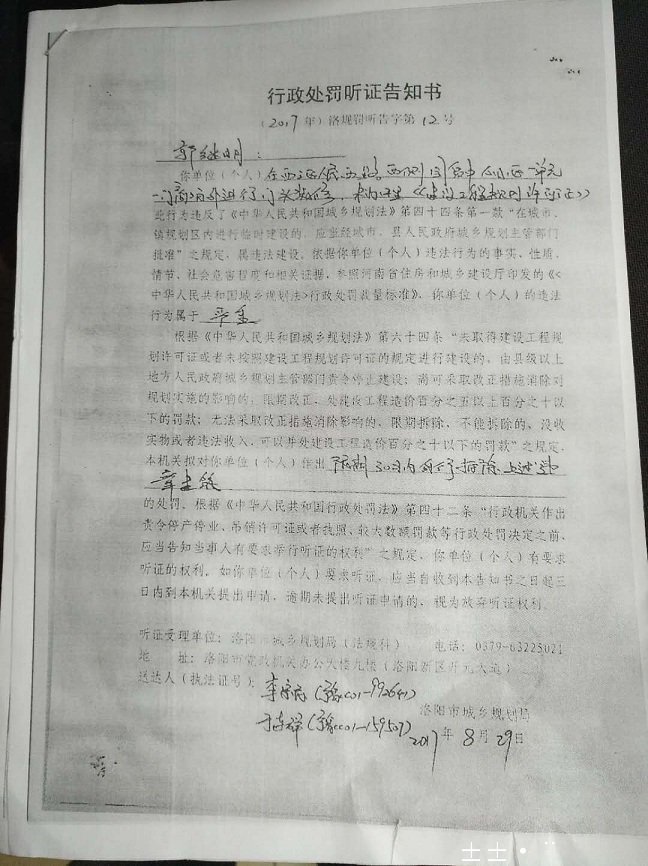 行政处罚听证告知书
(2017年)洛规罚听告字第12号
郭继明:
你单位(个人)在西工区
门商户外进行门头装修,未办理《建设工程规划许可证》
此行为违反了《中华人民共和国城乡规划法》第四十四条第一款“在城市、
镇规划区内进行临时建设的,应当经城市、县人民政府城乡规划主管部门
批准”之规定,属违法建设。依据你单位(个人)违法行为的事实、性质、
情节、社会危害程度和相关证据,参照河南省住房和城乡建设厅印发的《<
中华人民共和国城乡规划法>行政处罚裁量标准》,你单位(个人)的违法
行为属于 严重
根据《中华人民共和国城乡规划法》第六十四条“未取得建设工程规
划许可证或者未按照建设工程规划许可证的规定进行建设的,由县级以上
地方人民政府城乡规划主管部门责令停止建设;尚可采取改正措施消除对
规划实施的影响的,限期改正,处建设工程造价百分之五以上百分之十以
下的罚款;无法采取改正措施消除影响的,限期拆除,不能拆除的,没收
实物或者违法收入,可以并处建设工程造价百分之十以下的罚款”之规定,
本机关拟对你单位(个人)作出 限期30日内自行拆除上述违
章建筑
的处罚。根据《中华人民共和国行政处罚法》第四十二条“行政机关作出
责令停产停业、吊销许可证或者执照、较大数额罚款等行政处罚决定之前,
应当告知当事人有要求举行听证的权利”之规定,你单位(个人)有要求
听证的权利。如你单位(个人)要求听证,应当自收到本告知书之日起三
日内到本机关提出申请,逾期未提出听证申请的,视为放弃听证权利。
听证受理单位:洛阳市城乡规划局(法规科) 电话:0379-63225021
地 址:洛阳市党政机关办公大楼九楼(洛阳新区开元大道)
送达人(执法证号):李宗宾(豫C01-992641)
洛阳市城乡规划局
(豫C01-159507)
2017年8月29日